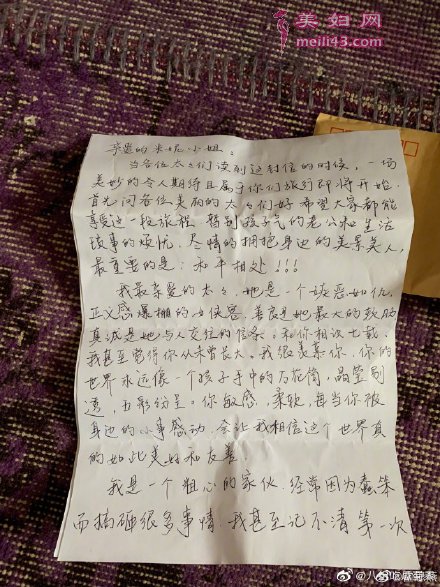 美妇网
meili43.com
亲爱的米妮小姐:
当各位太太们读到这封信的时候,一场
美妙的令人期待且属于你们旅行即将开始.
首先问各位美丽的太太们好.希望大家都能
享受这一段旅程.暂别孩子气的老公和生活
琐事的烦忧.尽情的拥抱身边的美景美人,
最重要的是:和平相处!!!
我最亲爱的太太,她是一个嫉恶如仇,
正义感爆棚的女侠客.善良是她最大的软肋
真诚是她与人交往的信条.和你相识七载,
我甚至觉得你从未曾长大.我很羡慕你,你的
世界永远像一个孩子手中的万花筒,晶莹剔
透,五彩纷呈.你敏感,柔软,每当你被
身边的小事感动,会让我相信这个世界真
的如此美好和友善.
我是一个粗心的家伙.经常因为蠢笨
而搞砸很多事情.我甚至记不清第一次